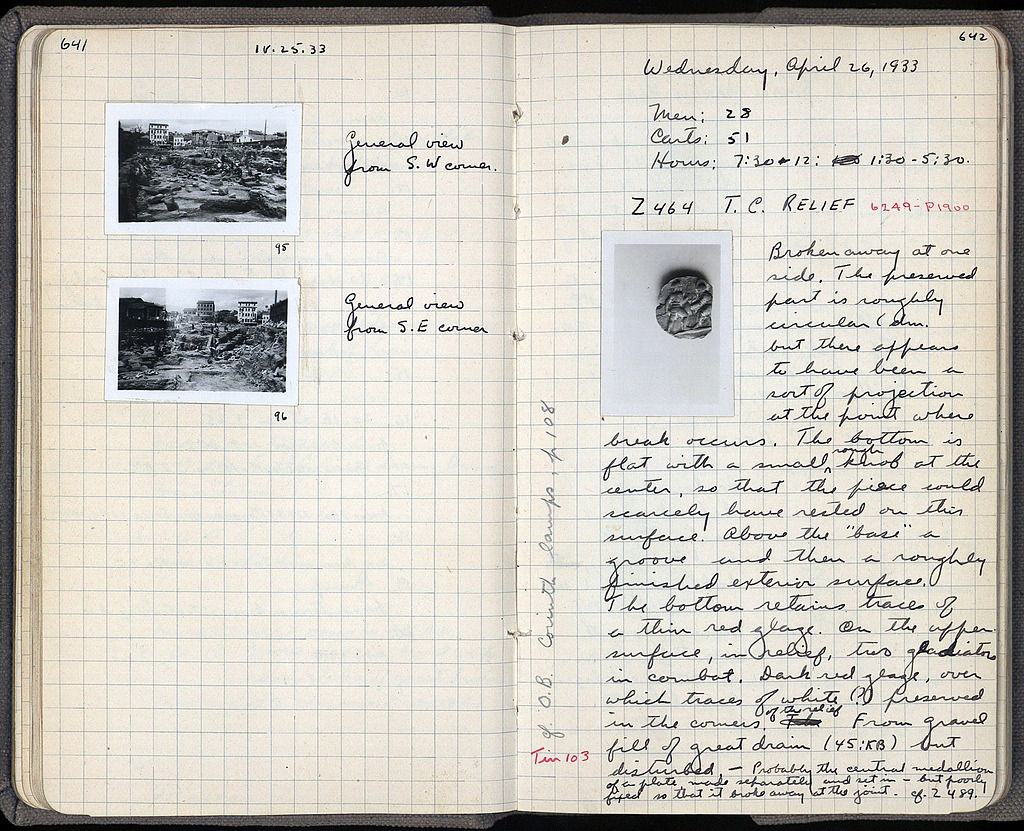 641
IV.25.33
General view
from S.W corner.
95
General view
from S.E corner
96
642
Wednesday, April 26, 1933
Men: 28
Carts: 51
Hours: 7:30-12: 1:30-5:30.
Z 464 T.C. RELIEF 6249-P1900
Broken away at one
side. The preserved
part is roughly
circular (dm.
but there appears
to have been a
sort of projection
at the point where
break occurs. The bottom is
flat with a small rough knob at the
center, so that the piece could
scarcely have rested on this
surface. Above the "base" a
groove and then a roughly
finished exterior surface.
The bottom retains traces of
a thin red glaze. On the upper
surface, in relief, two gladiators
in combat. Dark red glaze, over
which traces of white (?) preserved
in the corners of the relief From gravel
fill of great drain (45:KB) but
disturbed – Probably the central medallion
of a plate made separately and set in – but poorly
fixed so that it broke away at the joint. cf. Z 489.
cf. O.B. Corinth lamps, p 108
Tin 103